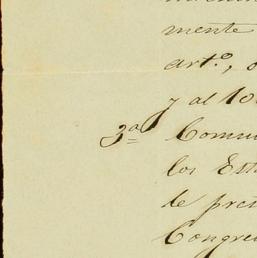 mente
art.º,
y al 10
3ª Comun
los Est
de pres
Congre